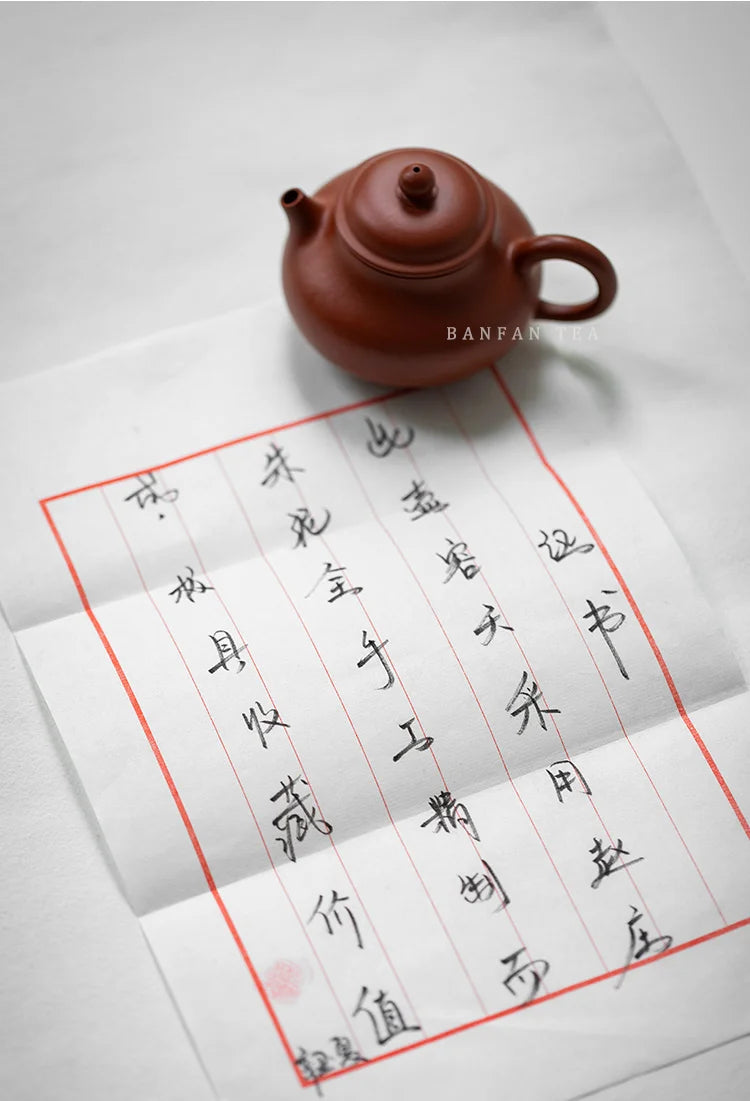 BANFAN TEA
证书
此壶容天采用赵庄
朱泥全手工精制而
成.极具收藏价值